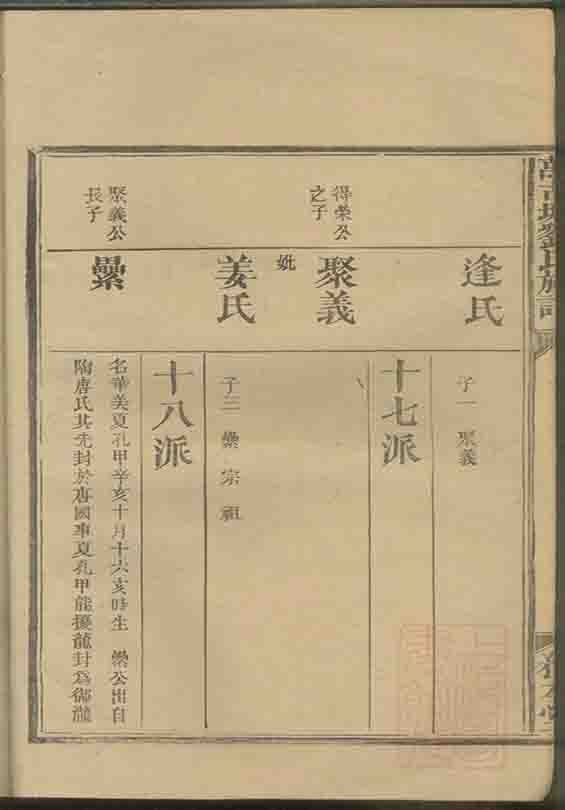 逄氏
子一 聚義
十七派
得榮公
之子
聚義
妣
姜氏
子三 纍 宗 祖
十八派
聚義公
長子
纍
名華美夏孔甲辛亥十月十六亥時生 纍公出自
陶唐氏其先封於唐國事夏孔甲能擾龍封為御龍